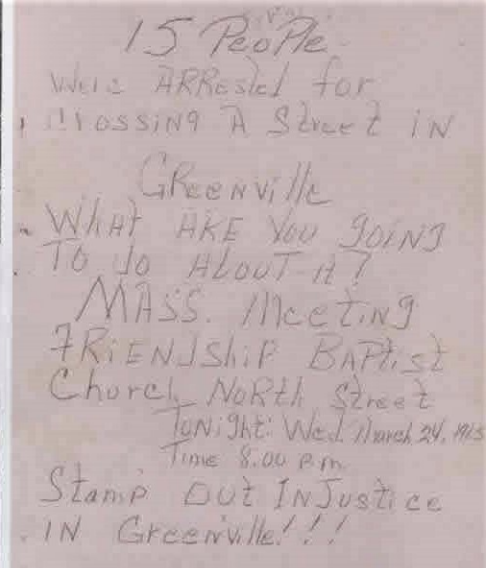 15 PeoPle
Were ARRested for
Crossing A Street iN
GReenville
WHAt ARE You goiNg
To do About it?
MASS. MeetiNg
FRiENdShiP BAPtist
Church NoRth Street
ToNight: Wed. March 24, 1965
Time 8:00 P.m
StamP Out INJustice
IN Greenville!!!